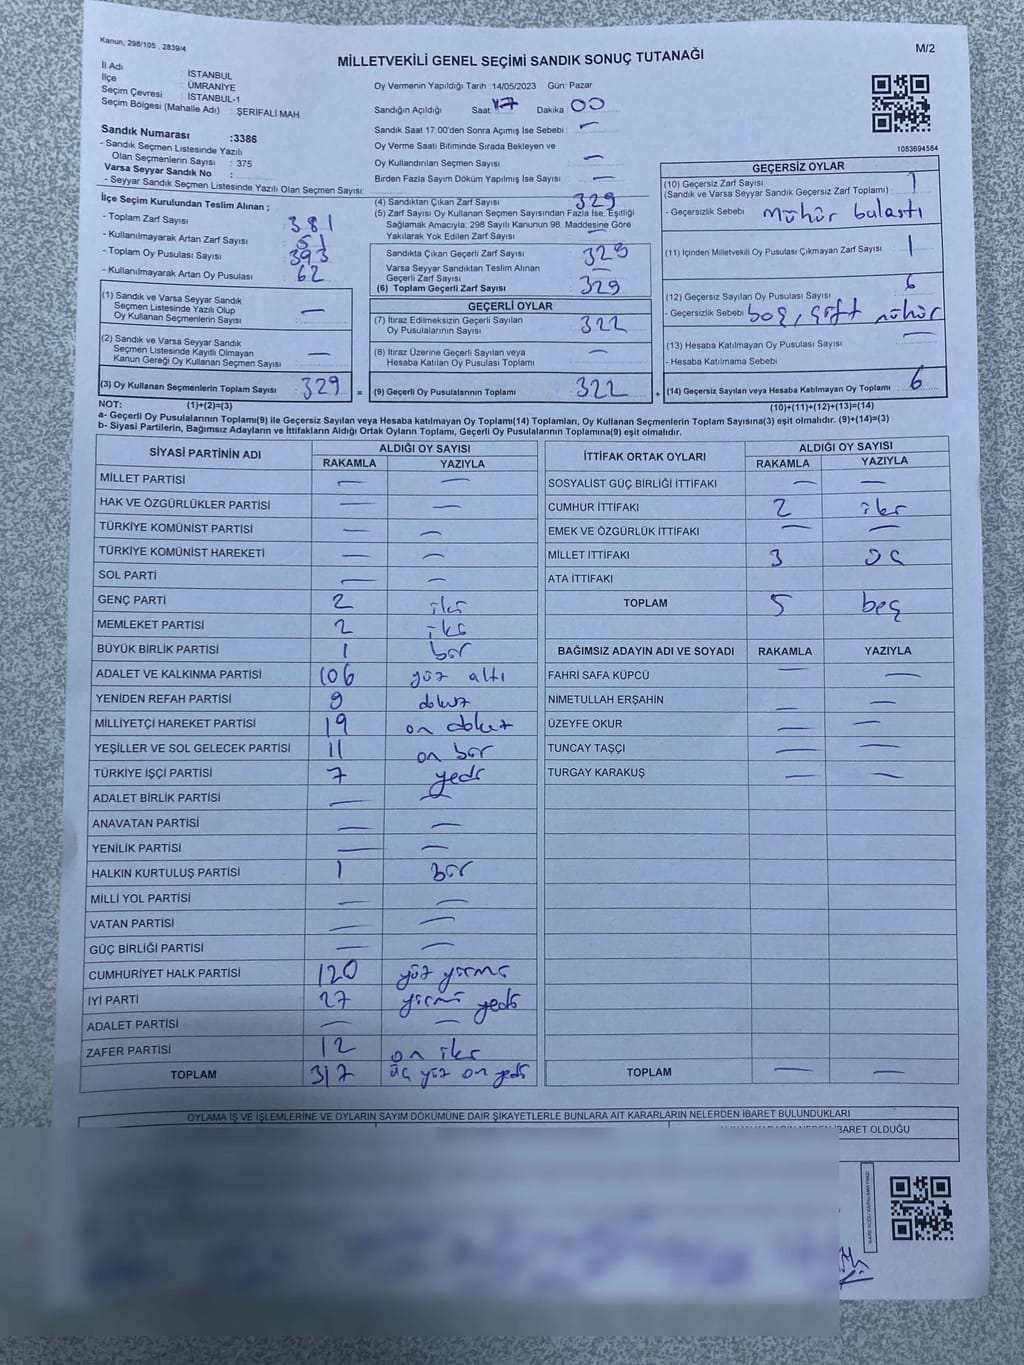 Kanun, 298/105 , 2839/4
M/2
MİLLETVEKİLİ GENEL SEÇİMİ SANDIK SONUÇ TUTANAĞI
İl Adı : İSTANBUL
İlçe : ÜMRANİYE
Seçim Çevresi : İSTANBUL-1
Seçim Bölgesi (Mahalle Adı) : ŞERİFALİ MAH.
Sandık Numarası :3386
- Sandık Seçmen Listesinde Yazılı
Olan Seçmenlerin Sayısı : 375
Varsa Seyyar Sandık No :
- Seyyar Sandık Seçmen Listesinde Yazılı Olan Seçmen Sayısı:
Oy Vermenin Yapıldığı Tarih :14/05/2023 Gün: Pazar
Sandığın Açıldığı Saat 17 Dakika 00
Sandık Saat 17:00'den Sonra Açımış İse Sebebi : —
Oy Verme Saati Bitiminde Sırada Bekleyen ve
Oy Kullandırılan Seçmen Sayısı : —
Birden Fazla Sayım Döküm Yapılmış İse Sayısı : —
1083694584
İlçe Seçim Kurulundan Teslim Alınan :
- Toplam Zarf Sayısı : 381
- Kullanılmayarak Artan Zarf Sayısı : 51
- Toplam Oy Pusulası Sayısı : 393
- Kullanılmayarak Artan Oy Pusulası : 62
(1) Sandık ve Varsa Seyyar Sandık
Seçmen Listesinde Yazılı Olup
Oy Kullanan Seçmenlerin Sayısı : —
(2) Sandık ve Varsa Seyyar Sandık
Seçmen Listesinde Kayıtlı Olmayan
Kanun Gereği Oy Kullanan Seçmen Sayısı : —
(3) Oy Kullanan Seçmenlerin Toplam Sayısı : 329 =
(4) Sandıktan Çıkan Zarf Sayısı : 329
(5) Zarf Sayısı Oy Kullanan Seçmen Sayısından Fazla İse, Eşitliği
Sağlamak Amacıyla; 298 Sayılı Kanunun 98. Maddesine Göre
Yakılarak Yok Edilen Zarf Sayısı : —
Sandıkta Çıkan Geçerli Zarf Sayısı : 329
Varsa Seyyar Sandıktan Teslim Alınan
Geçerli Zarf Sayısı : —
(6) Toplam Geçerli Zarf Sayısı : 329
GEÇERLİ OYLAR
(7) İtiraz Edilmeksizin Geçerli Sayılan
Oy Pusulalarının Sayısı : 322
(8) İtiraz Üzerine Geçerli Sayılan veya
Hesaba Katılan Oy Pusulası Toplamı : —
(9) Geçerli Oy Pusulalarının Toplamı : 322 +
GEÇERSİZ OYLAR
(10) Geçersiz Zarf Sayısı
(Sandık ve Varsa Seyyar Sandık Geçersiz Zarf Toplamı) : 1
- Geçersizlik Sebebi : mühür bulaştı
(11) İçinden Milletvekili Oy Pusulası Çıkmayan Zarf Sayısı : 1
(12) Geçersiz Sayılan Oy Pusulası Sayısı : 6
- Geçersizlik Sebebi : boş, çift mühür
(13) Hesaba Katılmayan Oy Pusulası Sayısı : —
- Hesaba Katılmama Sebebi :
(14) Geçersiz Sayılan veya Hesaba Katılmayan Oy Toplamı : 6
NOT: (1)+(2)=(3)
(10)+(11)+(12)+(13)=(14)
a- Geçerli Oy Pusulalarının Toplamı(9) ile Geçersiz Sayılan veya Hesaba katılmayan Oy Toplamı(14) Toplamları, Oy Kullanan Seçmenlerin Toplam Sayısına(3) eşit olmalıdır. (9)+(14)=(3)
b- Siyasi Partilerin, Bağımsız Adayların ve İttifakların Aldığı Ortak Oyların Toplamı, Geçerli Oy Pusulalarının Toplamına(9) eşit olmalıdır.
SİYASİ PARTİNİN ADI ALDIĞI OY SAYISI
RAKAMLA YAZIYLA
MİLLET PARTİSİ — —
HAK VE ÖZGÜRLÜKLER PARTİSİ — —
TÜRKİYE KOMÜNİST PARTİSİ — —
TÜRKİYE KOMÜNİST HAREKETİ — —
SOL PARTİ — —
GENÇ PARTİ 2 iki
MEMLEKET PARTİSİ 2 iki
BÜYÜK BİRLİK PARTİSİ 1 bir
ADALET VE KALKINMA PARTİSİ 106 yüz altı
YENİDEN REFAH PARTİSİ 9 dokuz
MİLLİYETÇİ HAREKET PARTİSİ 19 on dokuz
YEŞİLLER VE SOL GELECEK PARTİSİ 11 on bir
TÜRKİYE İŞÇİ PARTİSİ 7 yedi
ADALET BİRLİK PARTİSİ — —
ANAVATAN PARTİSİ — —
YENİLİK PARTİSİ — —
HALKIN KURTULUŞ PARTİSİ 1 bir
MİLLİ YOL PARTİSİ — —
VATAN PARTİSİ — —
GÜÇ BİRLİĞİ PARTİSİ — —
CUMHURİYET HALK PARTİSİ 120 yüz yirmi
İYİ PARTİ 27 yirmi yedi
ADALET PARTİSİ — —
ZAFER PARTİSİ 12 on iki
TOPLAM 317 üç yüz on yedi
İTTİFAK ORTAK OYLARI ALDIĞI OY SAYISI
RAKAMLA YAZIYLA
SOSYALİST GÜÇ BİRLİĞİ İTTİFAKI — —
CUMHUR İTTİFAKI 2 iki
EMEK VE ÖZGÜRLÜK İTTİFAKI — —
MİLLET İTTİFAKI 3 üç
ATA İTTİFAKI
TOPLAM 5 beş
BAĞIMSIZ ADAYIN ADI VE SOYADI RAKAMLA YAZIYLA
FAHRİ SAFA KÜPCÜ — —
NİMETULLAH ERŞAHİN — —
ÜZEYFE OKUR — —
TUNCAY TAŞÇI — —
TURGAY KARAKUŞ — —
TOPLAM — —
OYLAMA İŞ VE İŞLEMLERİNE VE OYLARIN SAYIM DÖKÜMÜNE DAİR ŞİKAYETLERLE BUNLARA AİT KARARLARIN NELERDEN İBARET BULUNDUKLARI
İBARET OLDUĞU